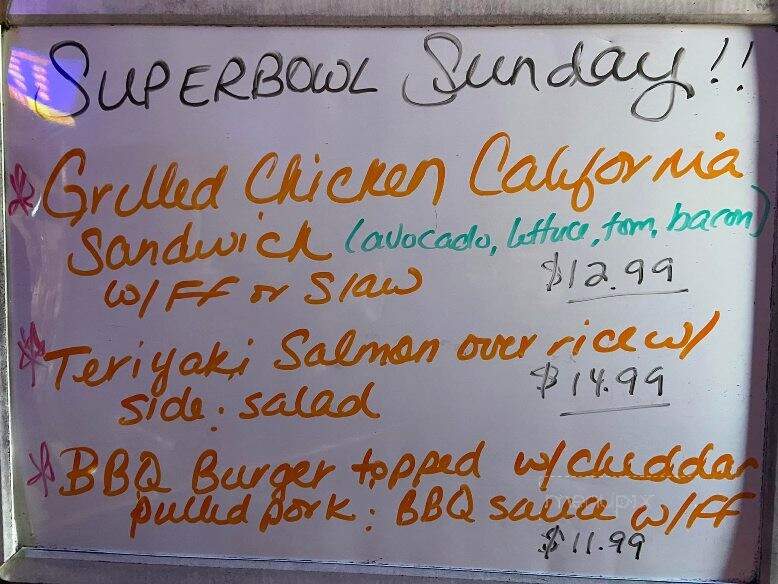 SUPERBOWL Sunday!!
* Grilled Chicken California
Sandwick (avocado, lettuce, tom, bacon)
w/FF or Slaw $12.99
* Teriyaki Salmon over rice w/
side: salad $14.99
* BBQ Burger topped w/cheddar
pulled pork: BBQ sauce w/FF
$11.99
menupix